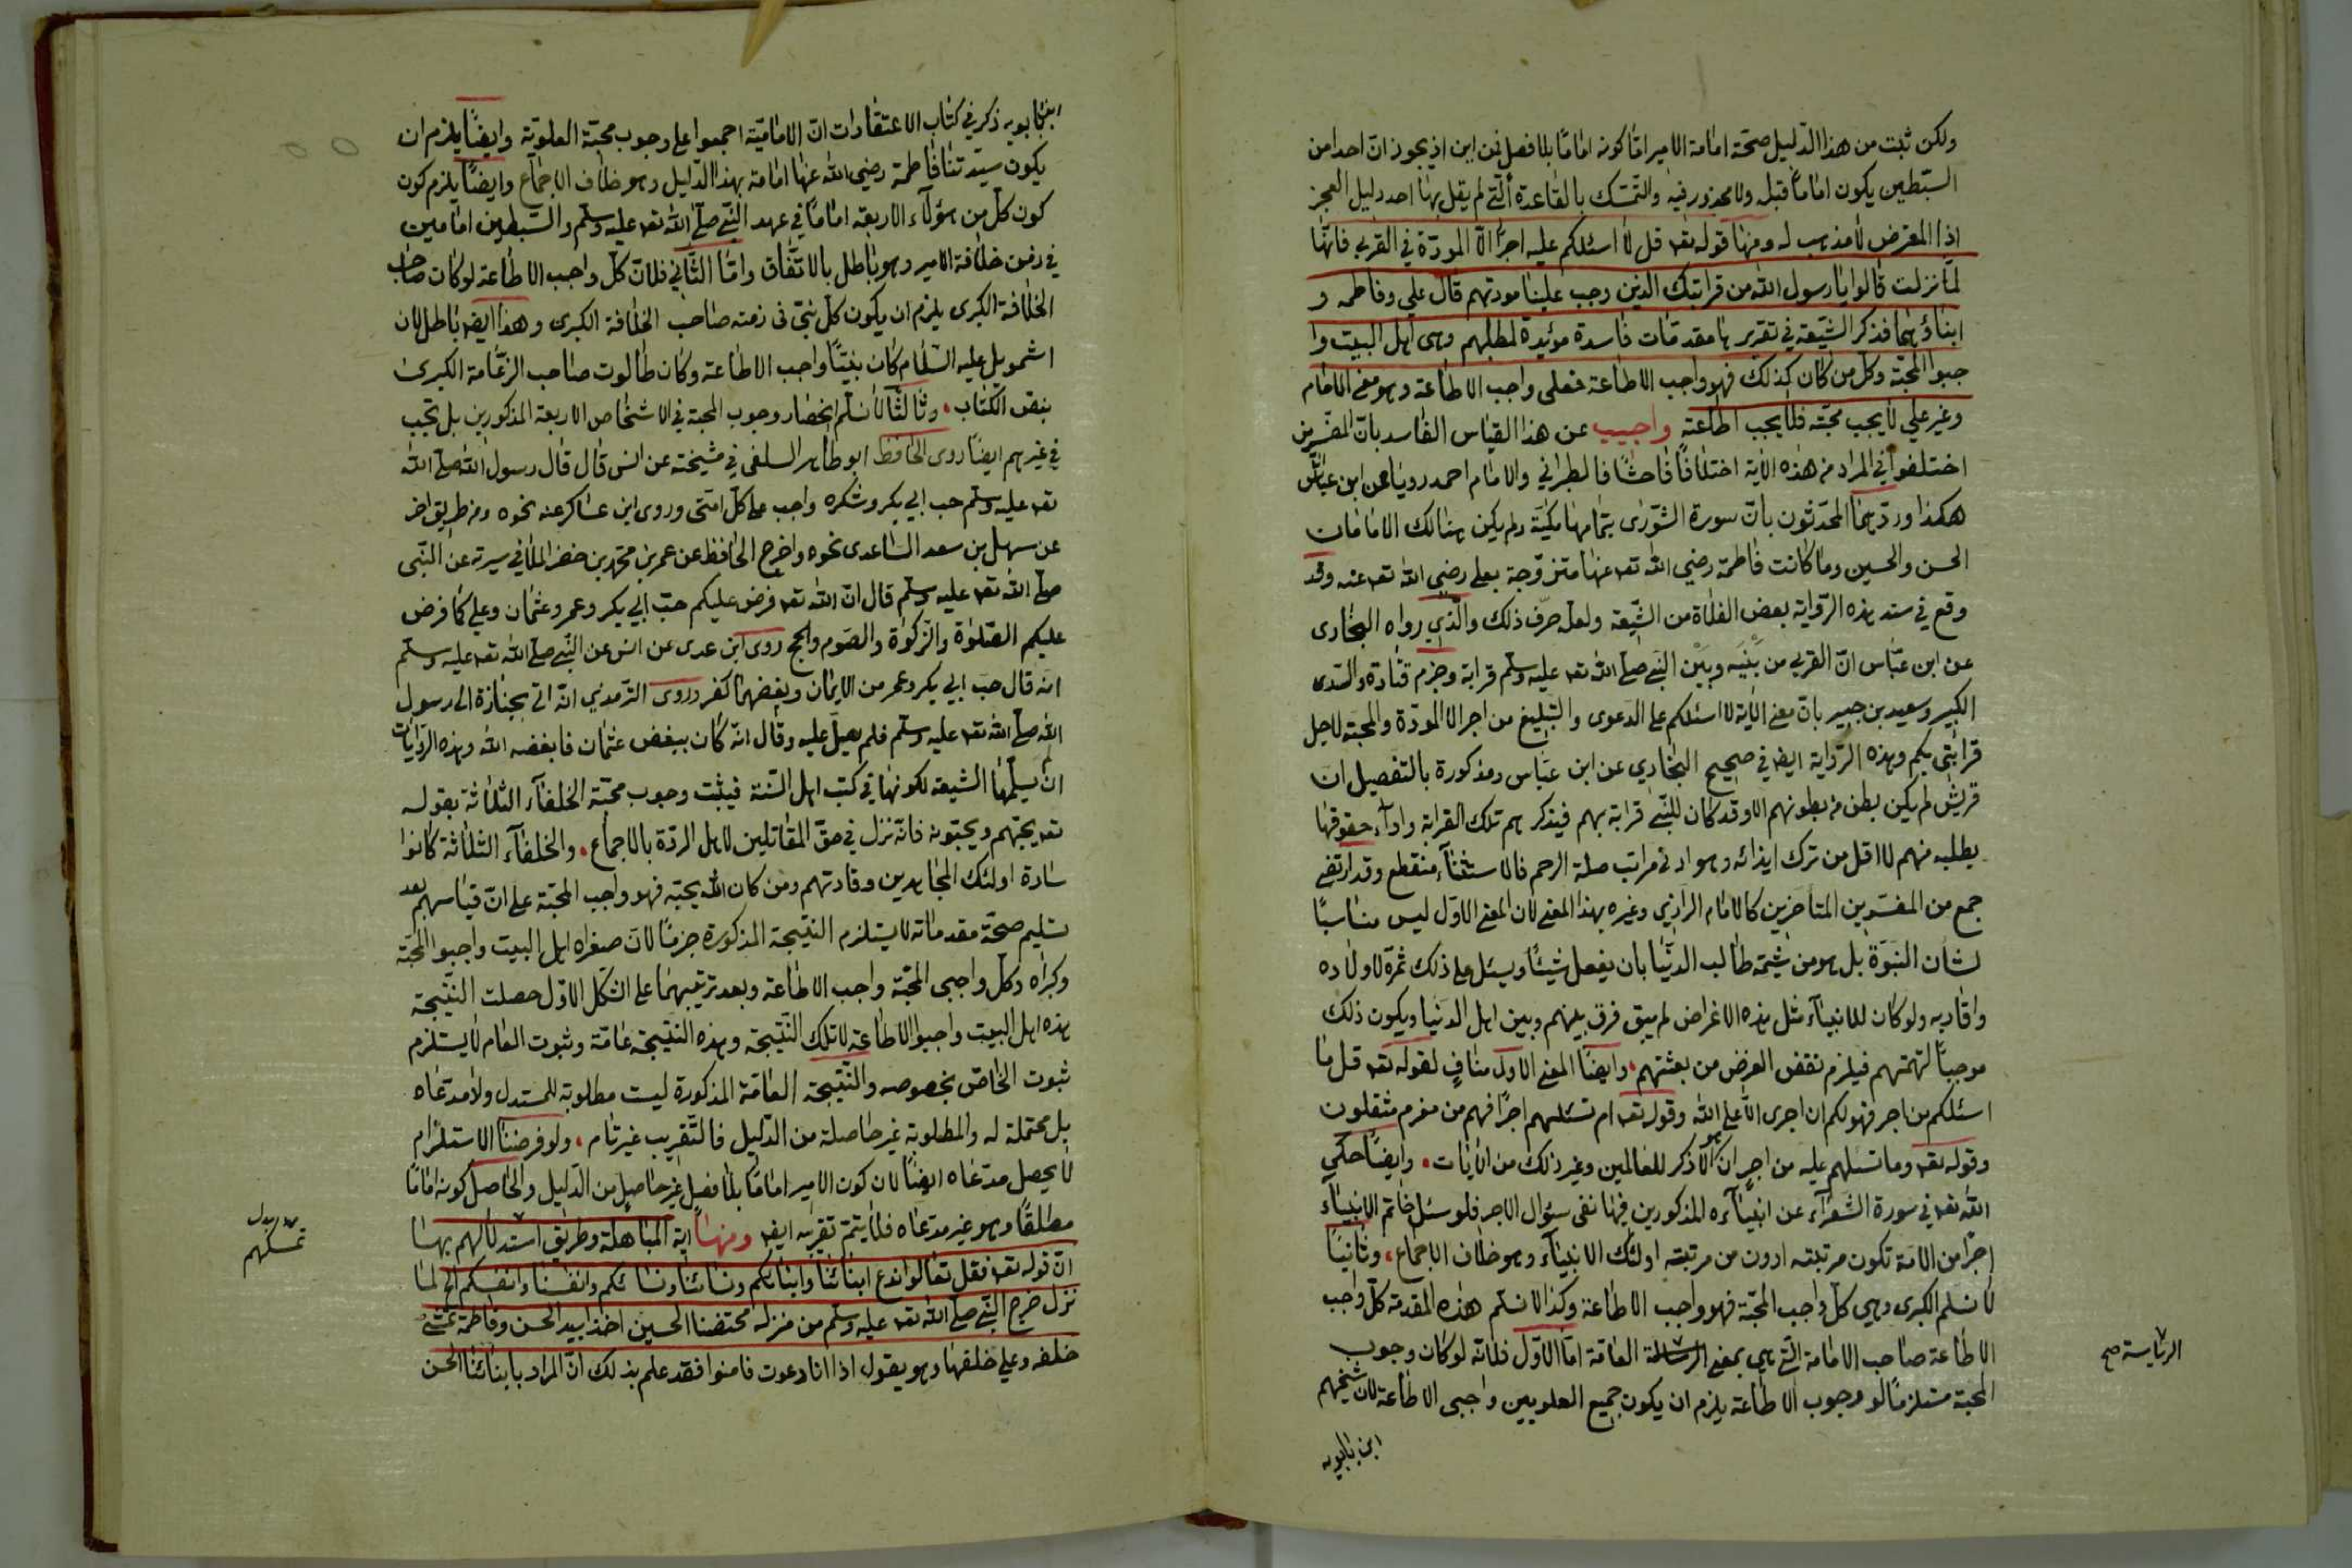 ولكن ثبت من هذا الدّليل صحّة امامة الامير امّا كونه امامًا بلا فصل فمن اين اذ يجوز انّ احدا من
السّبطين يكون امامًا قبله ولا محذور فيه والتّمسّك بالقاعدة الّتي لم يقل بها احد دليل العجز
اذا المعترض لا مذهب له ومنها قوله تعه قل لا اسئلكم عليه اجرًا الّا المودّة في القربى فانّها
لمّا نزلت قالوا يا رسول الله من قرابتك الذين وجب علينا مودتهم قال علي وفاطمه و
ابناؤهما فذكر الشّيعة في تقريرها مقدمات فاسدة مؤيدة لمطلبهم وهى اهل البيت وا
جبوا المحبّة وكلّ من كان كذلك فهو واجب الاطاعة فعلى واجب الاطاعة وهو معنى الامام
وغير علي لا يجب محبّته فلا يجب اطاعته واجيب عن هذا القياس الفاسد بانّ المفسّرين
اختلفوا في المراد من هذه الاية اختلافًا فاحشًا فالطبراني والامام احمد رويا عن ابن عبّاس
هكذا وردّهما المحدّثون بانّ سورة الشّورى بتمامها مكيّة ولم يكن هنالك الامامان
الحسن والحسين وما كانت فاطمة رضي الله تعه عنها متزوّجة بعلي رضي الله تعه عنه وقد
وقع في سند هذه الرّواية بعض الغلاة من الشّيعة ولعله حرّف ذلك والّذي رواه البخارى
عن ابن عبّاس انّ القربى من بَيْنَه وبَيْن النّبي صلّى الله تعه عليه وسلّم قرابة وجزم قتادة والسّدى
الكبير وسعيد بن جبير بانّ معنى الآية لا اسئلكم على الدعوى والتّبليغ من اجر الا المودّة والمحبّة لاجل
قرابتى بكم وهذه الرّواية ايضه في صحيح البخاري عن ابن عبّاس ومذكورة بالتفصيل ان
قريش لم يكن بطن من بطونهم الا وقد كان للنّبي قرابة بهم فيذكرهم تلك القرابة واداء حقوقها
يطلبه منهم لا اقل من ترك ايذائه وهو ادنى مراتب صلة الرحم فالاستثناء منقطع وقد ارتضى
جمع من المفسّرين المتأخرين كالامام الرازي وغيره بهذا المعنى لان المعنى الاوّل ليس مناسبًا
لشان النبوّة بل هو من شيمة طالب الدنيا بان يفعل شيئًا ويسئل على ذلك ثمرة لاولاده
واقاربه ولو كان للانبياء مثل هذه الاغراض لم يبق فرق بينهم وبين اهل الدنيا ويكون ذلك
موجبًا لتهمتهم فيلزم نقض الغرض من بعثتهم، وايضًا المعنى الاول منافٍ لقوله تعه قل ما
اسئلكم من اجر فهو لكم ان اجرى الّا على الله وقوله تعه ام تسئلهم اجرًا فهم من مغرم مثقلون
وقوله تعه وما تسئلهم عليه من اجرٍ ان هو الّا ذكر للعالمين وغير ذلك من الآيات، وايضًا حكي
الله تعه في سورة الشعراء عن انبيآءه المذكورين فيها نفى سؤال الاجر فلو سئل خاتم الانبيآء
اجرًا من الامّة تكون مرتبته ادون من مرتبته اولئك الانبيآء وهو خلاف الاجماع، وثانيًا
لا نسلم الكبرى وهي كلّ واجب المحبّة فهو واجب الاطاعة وكذا لا نسلم هذه المقدمة كلّ واجب
الاطاعة صاحب الامامة الّتي هي بمعنى الرسالة العامّة امّا الاوّل فلانّه لو كان وجوب
المحبة مستلزمًا لوجوب الاطاعة يلزم ان يكون جميع العلويين واجبى الاطاعة لانّ شيخهم
ابن بابويه
الرياسة صح
ابن بابويه ذكر في كتاب الاعتقادات انّ الاماميّة اجمعوا على وجوب محبّة العلويّة وايضًا يلزم ان
يكون سيّدتنا فاطمة رضي الله عنها امامة بهذا الدّليل وهو خلاف الاجماع وايضًا يلزم كون
كون كلّ من هؤلآء الاربعة امامًا في عهد النّبي صلّى الله تعه عليه وسلّم والسّبطين امامين
في زمن خلافة الامير وهو باطل بالاتّفاق وامّا الثّاني فلانّ كلّ واجب الاطاعة لو كان صاحب
الخلافة الكبرى يلزم ان يكون كلّ نبيّ في زمنه صاحب الخلافة الكبرى وهذا ايضه باطل لان
اشمويل عليه السّلام كان نبيًّا واجب الاطاعة وكان طالوت صاحب الزّعامة الكبرى
بنص الكتاب، وثالثًا لا نسلّم انحصار وجوب المحبة في الاشخاص الاربعة المذكورين بل تجب
في غيرهم ايضًا روى الحافظ ابو طاهر السلفى في مشيخته عن انس قال قال رسول الله صلّى الله
تعه عليه وسلّم حب ابي بكر وشكره واجب على كلّ امتى وروى ابن عساكر عنه نحوه ومن طريق اخر
عن سهل بن سعد السّاعدى نحوه واخرج الحافظ عن عمر بن محمّد بن خضر الملا في سيرته عن النّبى
صلّى الله تعه عليه وسلّم قال انّ الله تعه فرض عليكم حبّ ابي بكر وعمر وعثمان وعلى كما فرض
عليكم الصّلوة والزّكوة والصّوم والحج روى ابن عدى عن انس عن النّبي صلّى الله تعه عليه وسلّم
انّه قال حبّ ابي بكر وعمر من الايمان وبغضهما كفر وروى التّرمذي انّه اتى بجنازة الى رسول
الله صلّى الله تعه عليه وسلّم فلم يصلّ عليه وقال انّه كان يبغض عثمان فابغضه الله وهذه الرّوايات
ان يسلّمها الشيعة لكونها في كتب اهل السّنة فيثبت وجوب محبّة الخلفآء الثلاثة بقوله
تعه يحبّهم ويحبّونه فانّه نزل في حقّ المقاتلين لاهل الردّة بالاجماع، والخلفآء الثّلاثة كانوا
سادة اولئك المجاهدين وقادتهم ومن كان الله يحبّه فهو واجب المحبّة على انّ قياسهم بعد
تسليم صحّة مقدماته لا يستلزم النّتيجة المذكورة جزمًا لانّ صغراه اهل البيت واجبوا المحبّة
وكبراه وكلّ واجبى المحبّة واجب الاطاعة وبعد ترتيبهما على الشّكل الاوّل حصلت النّتيجة
هذه اهل البيت واجبوا الاطاعة لا تلك النّتيجة وهذه النّتيجة عامّة وثبوت العام لا يستلزم
ثبوت الخاصّ بخصوصه والنّتيجة العامّة المذكورة ليست مطلوبة للمستدل ولا مدّعاه
بل محتملة له والمطلوبة غير حاصلة من الدّليل فالتّقريب غير تام، ولو فرضنا الاستلزام
لا يحصل مدعاه ايضًا لان كون الامير امامًا بلا فصل غير حاصل من الدّليل والحاصل كونه امامًا
مطلقًا وهو غير مدّعاه فلا يتمّ تقريبه ايضه ومنها آية المباهلة وطريق استدلالهم بها
انّ قوله تعه فقل تعالوا ندع ابنائنا وابنائكم ونسائنا ونسائكم وانفسنا وانفسكم الخ لمّا
نزل خرج النّبي صلّى الله تعه عليه وسلّم من منزله محتضنا الحسين اخذا بيد الحسن وفاطمة تمشي
خلفه وعلي خلفها وهو يقول اذا انا دعوت فامنوا فقد علم بذلك انّ المراد بابنائنا الحسن
تمسكهم